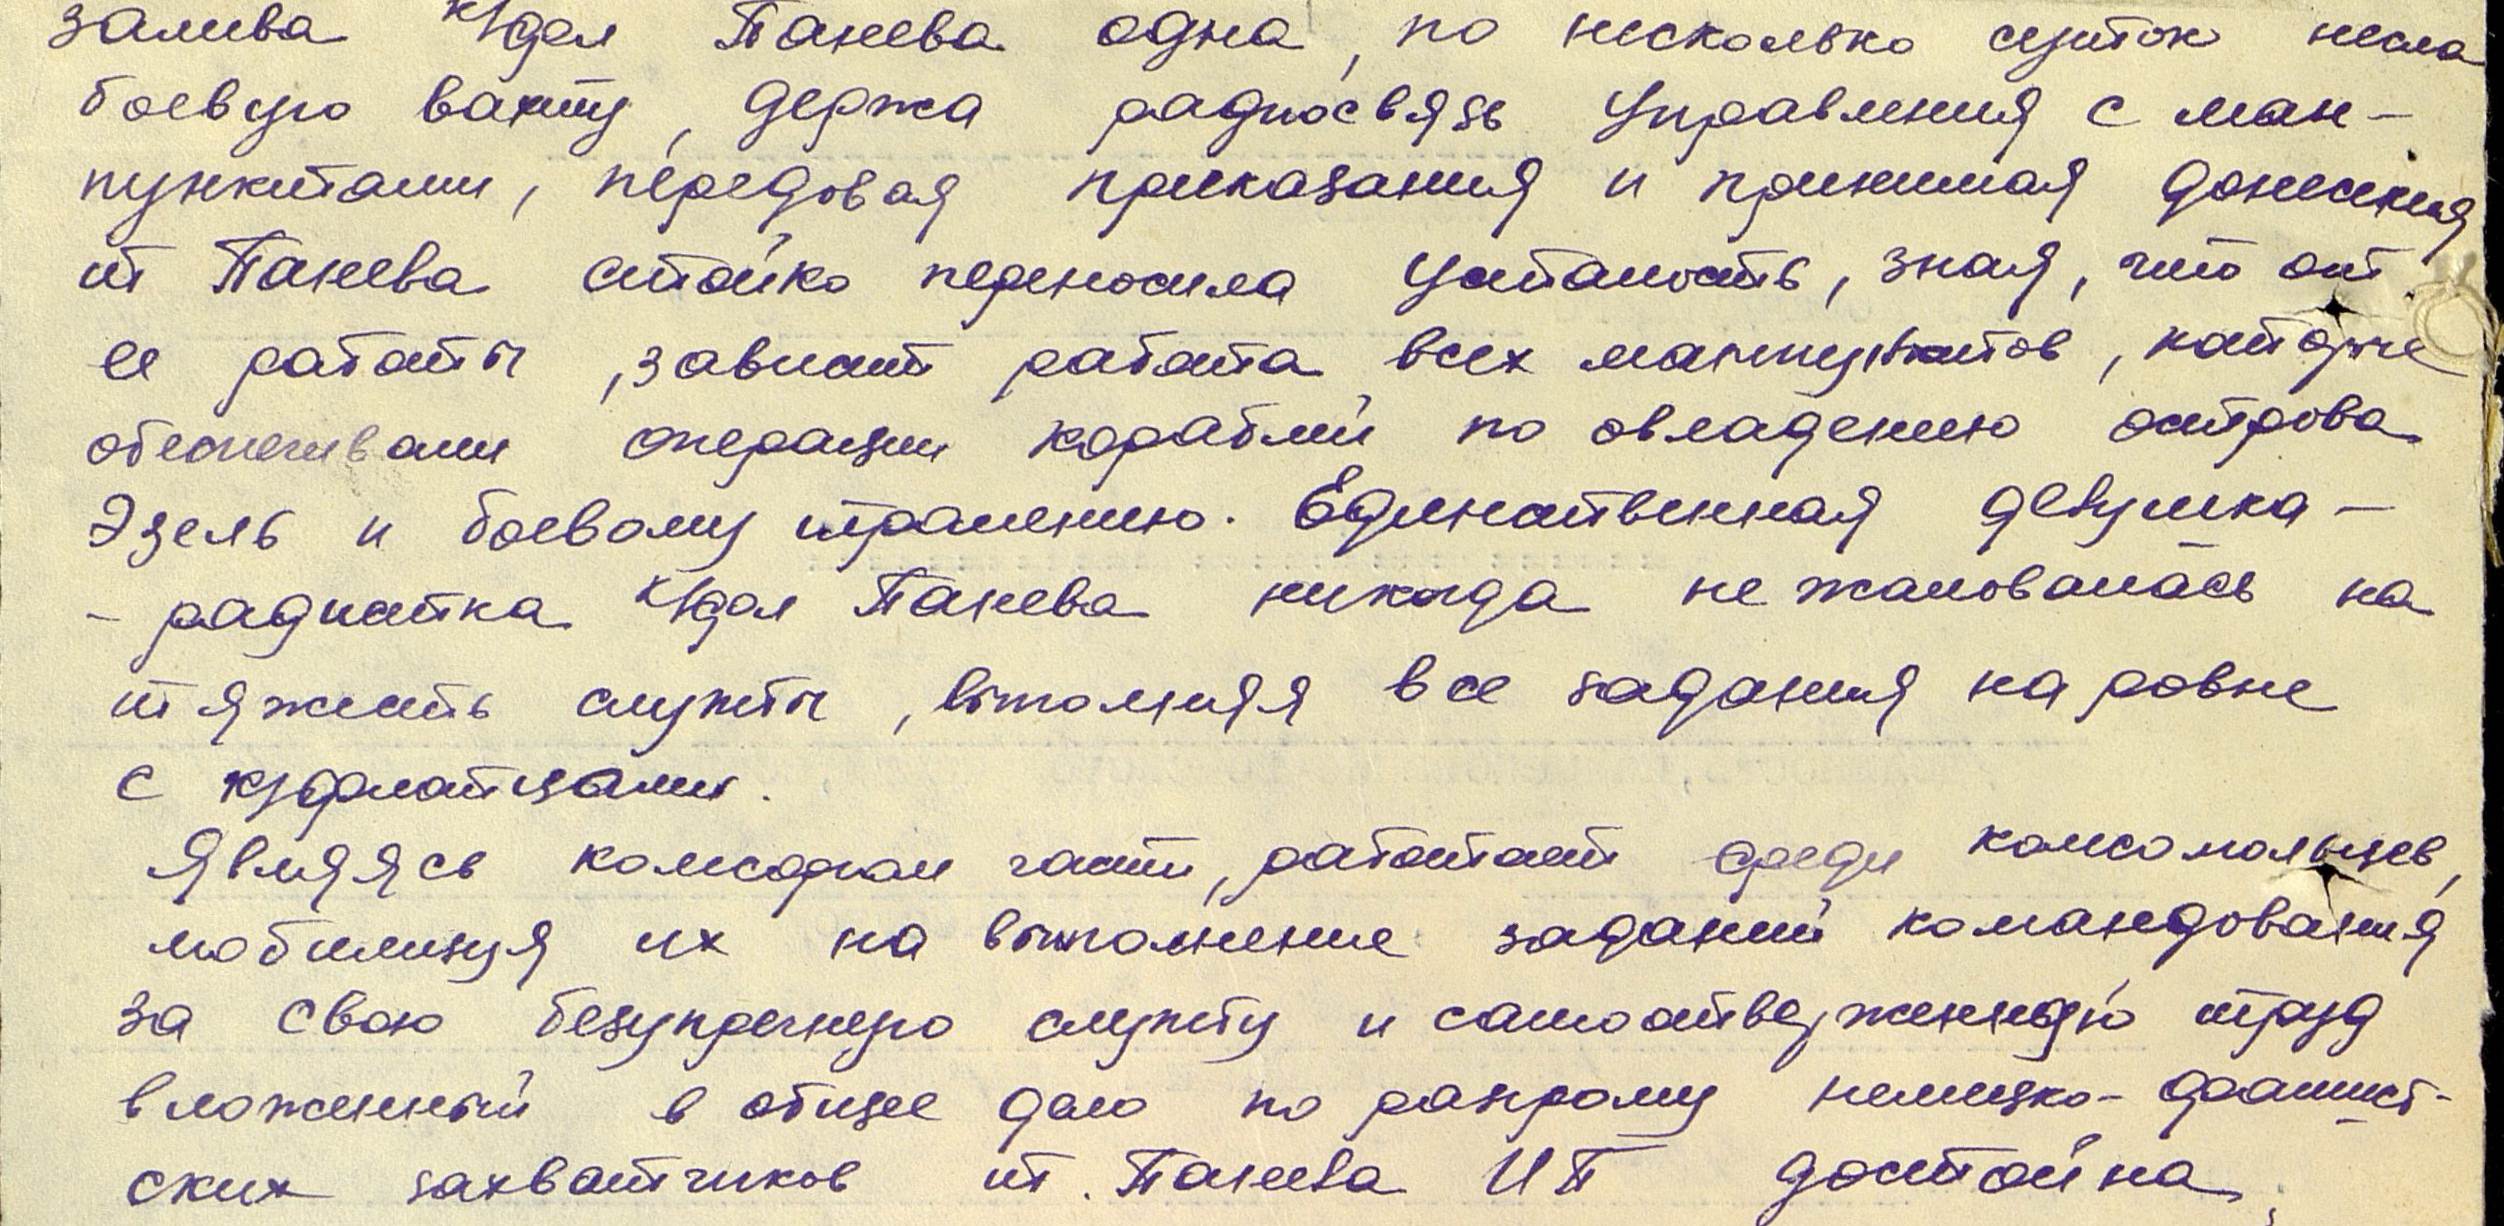 залива к/фл Панева одна, по несколько суток несла
боевую вахту, держа радиосвязь Управления с ман-
пунктами, передовая приказания и принимая донесения
т Панева стойко переносила усталость, зная, что от
ее работы, зависит работа всех манпунктов, которые
обеспечивали операции кораблей по овладению острова
Эзель и боевому тралению. Единственная девушка-
- радистка к/фл Панева никогда не жаловалась на
тяжесть службы, выполняя все задания на ровне
с к/флотцами.
Являясь комсоргом части, работает среди комсомольцев,
мобилизуя их на выполнение заданий командования
за свою безупречную службу и самоотверженную труд
вложенный в общее дело по разгрому немецко-фашист-
ских захватчиков т. Панева ИП достойна